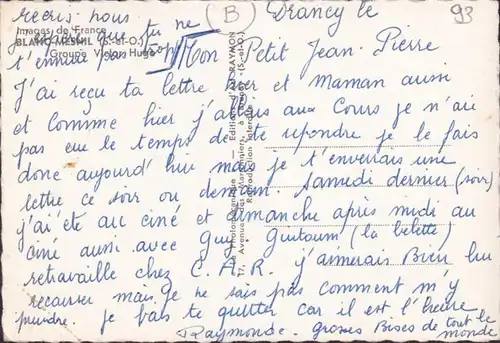 recris-nous
j'espère que tu ne
t'ennuie pas trop
Images de France
BLANC-MESNIL (S.-et-O.)
Groupe Victor Hugo
B
Drancy le
93
Mon Petit Jean-Pierre
J'ai reçu ta lettre hier et Maman aussi
et comme hier j'allais aux cours je n'ai
pas eue le temps de te répondre je le fais
donc aujourd'hui mais je t'enverrais une
lettre ce soir ou demain. Samedi dernier (soir)
j'ai été au ciné et dimanche après midi au
ciné aussi avec Guy. Guitoum (la belette)
retravaille chez C.A.R. j'aimerais Bien lui
recauser mais je ne sais pas comment m'y
prendre. je vais te quitter car il est l'heure
Raymonde. Grosses Bises de tout le
monde